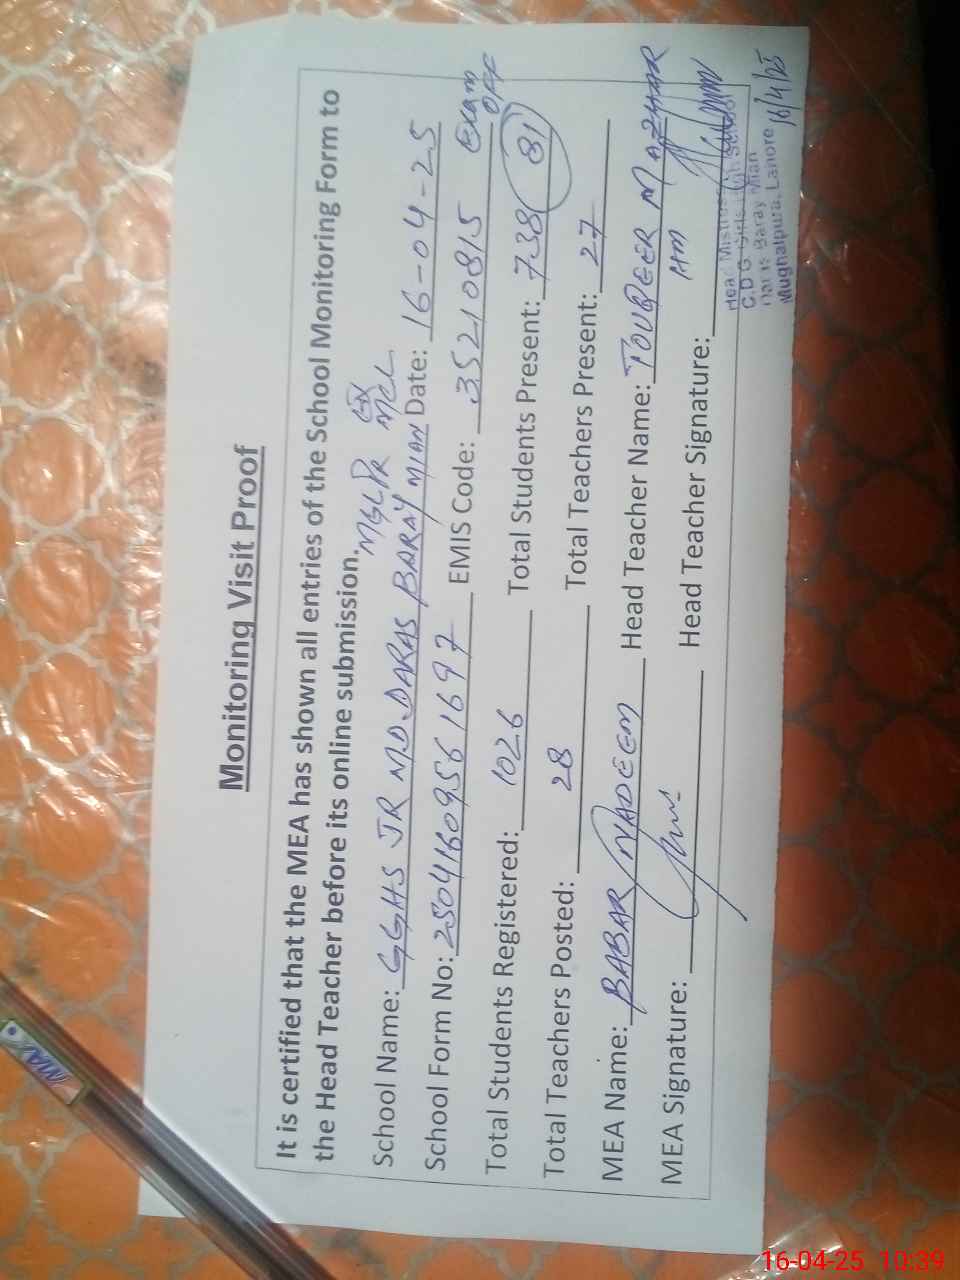 Monitoring Visit Proof
It is certified that the MEA has shown all entries of the School Monitoring Form to
the Head Teacher before its online submission.
MGLPR Ex MCL
School Name: GGHS JR MD DARAS BARAY MIAN Date: 16-04-25
School Form No: 2504160956 1697 EMIS Code: 35210815 Exam OFF
Total Students Registered: 1026 Total Students Present: 738 (81)
Total Teachers Posted: 28 Total Teachers Present: 27
MEA Name: BABAR NADEEM Head Teacher Name: TOUQEER MAZHAR
MEA Signature: Head Teacher Signature: HM
16/4/25
Head Mistress
C.D.G Girls High School
Baray Mian
Mughalpura, Lahore
MAX
16-04-25 10:39